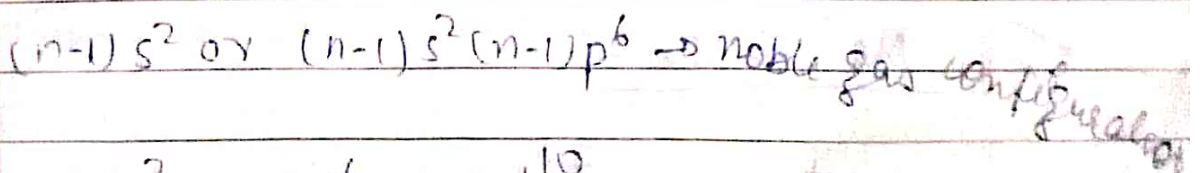 (n-1) s² or (n-1) s² (n-1) p⁶ → noble gas configuration